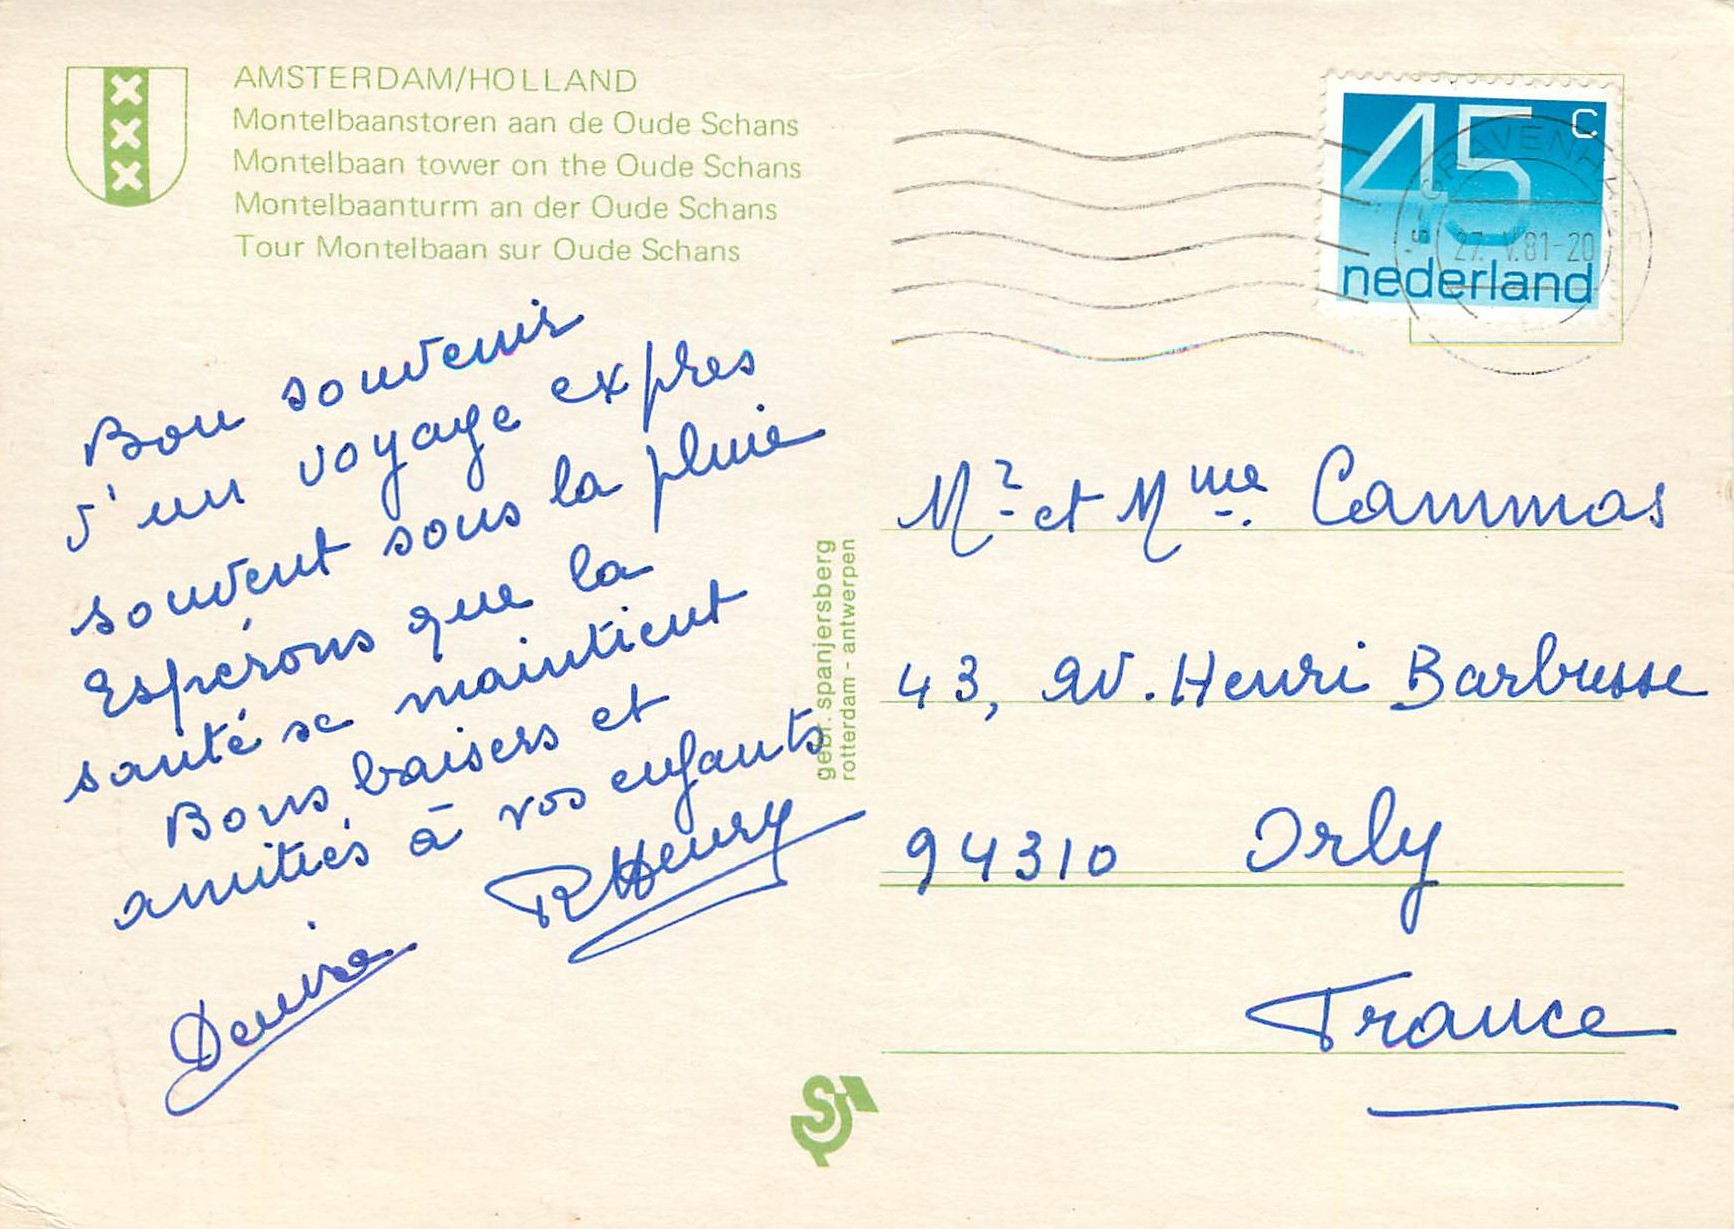 AMSTERDAM/HOLLAND
Montelbaanstoren aan de Oude Schans
Montelbaan tower on the Oude Schans
Montelbaanturm an der Oude Schans
Tour Montelbaan sur Oude Schans
45 c
nederland
'S-GRAVENHAGE
27. V.81-20
Bon souvenir
d'un voyage expres
souvent sous la pluie
Espérons que la
santé se maintient
Bons baisers et
amitiés à vos enfants
RHenry
Denise
gebr. spanjersberg
rotterdam - antwerpen
Mr et Mme Cammas
43, av. Henri Barbusse
94310 Orly
France